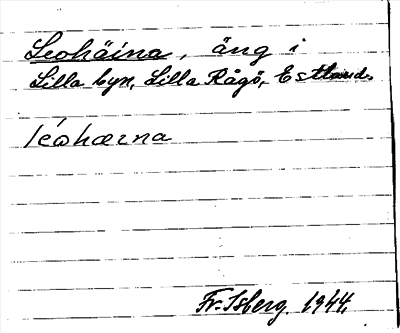 Leohäina, äng i
Lilla byn, Lilla Rågö, Estland.
léohæɩna
Fr. Isberg. 1944.